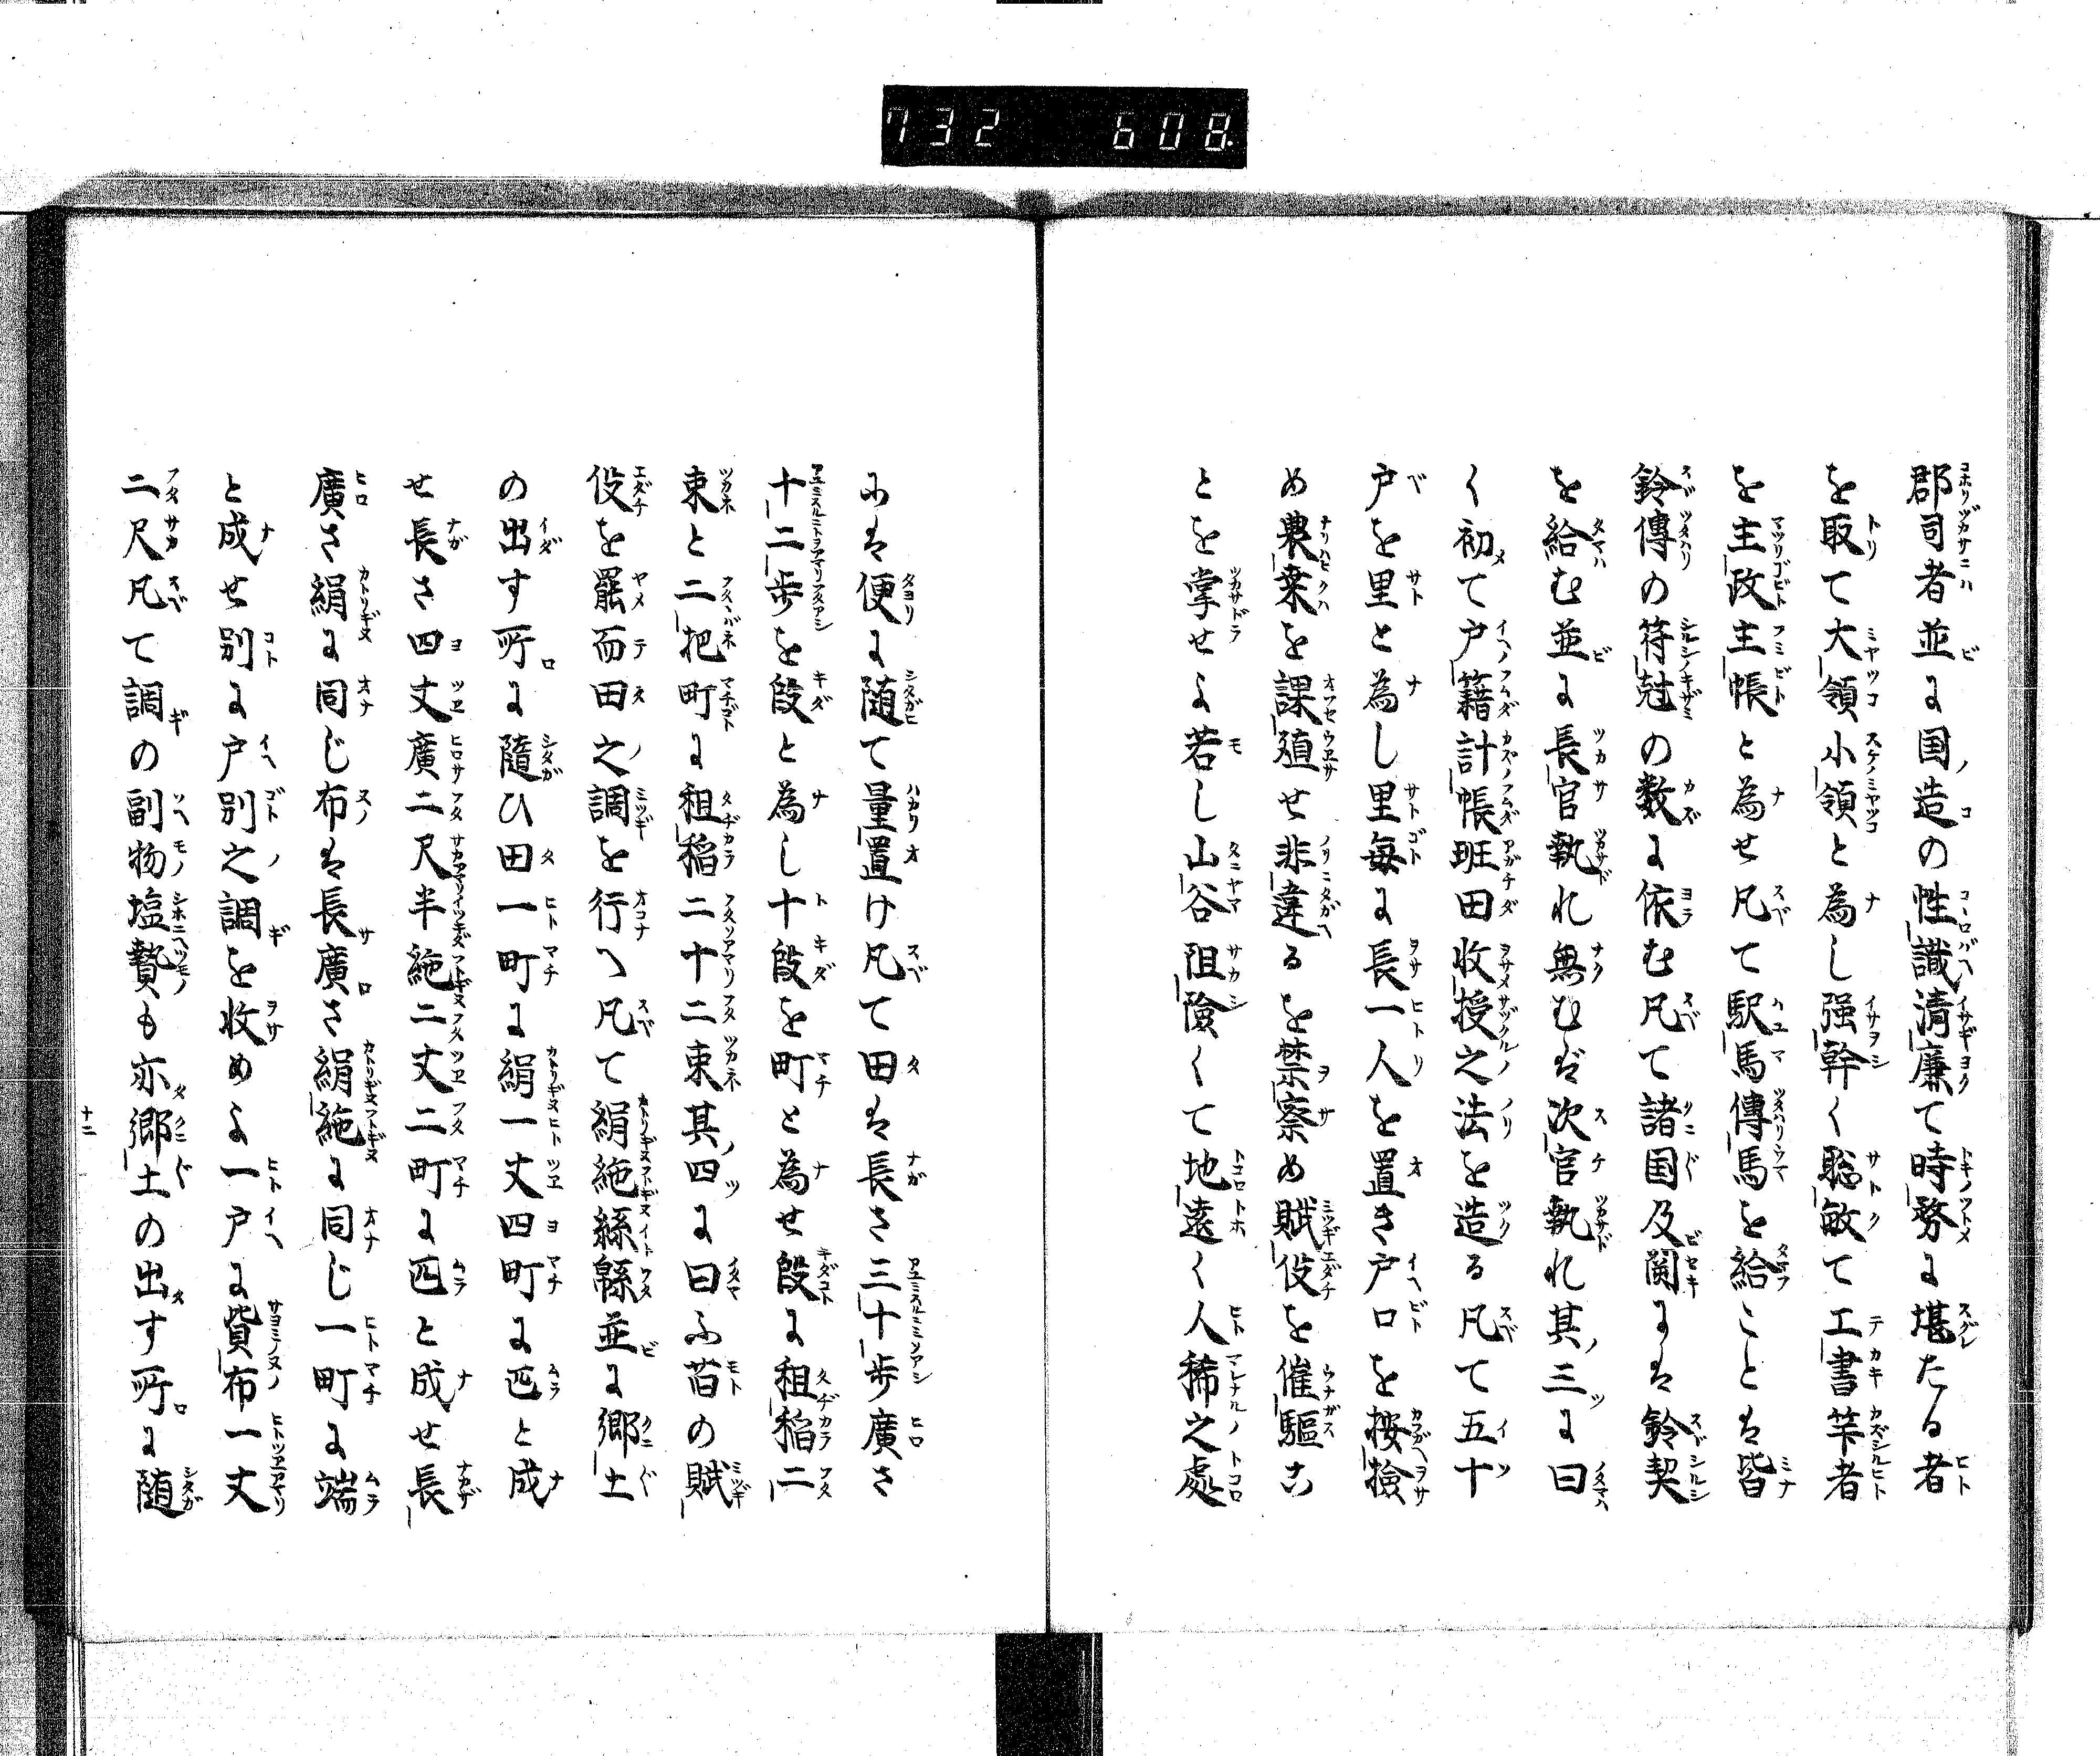 732 608
郡司者並に国造の性識清廉て時務に堪たる者
を取て大領小領と為し强幹く聡敏て工書筭者
を主政主帳と為せ凡て駅馬傳馬を給ことは皆
鈴傳の符尅の数に依む凡て諸国及関には鈴契
を給む並に長官執れ無むば次官執れ其三に曰
く初て戸籍計帳班田收授之法を造る凡て五十
戸を里と為し里毎に長一人を置き戸口を按撿
め農桒を課殖せ非違るを禁察め賦伇を催驅こ
とを掌せよ若し山谷阻險くて地遠く人稀之處
には便に随て量置け凡て田は長さ三十歩廣さ
十二歩を段と為し十段を町と為せ段に租稲二
束と二把町に租稲二十二束其四に曰ふ𦾔の賦
伇を罷而田之調を行へ凡て絹絁絲緜並に郷土
の出す所に隨ひ田一町に絹一丈四町に匹と成
せ長さ四丈廣二尺半絁二丈二町に匹と成せ長
廣さ絹に同じ布は長廣さ絹絁に同じ一町に端
と成せ別に戸別之調を收めよ一戸に貲布一丈
二尺凡て調の副物塩贄も亦郷土の出す所に随
十二